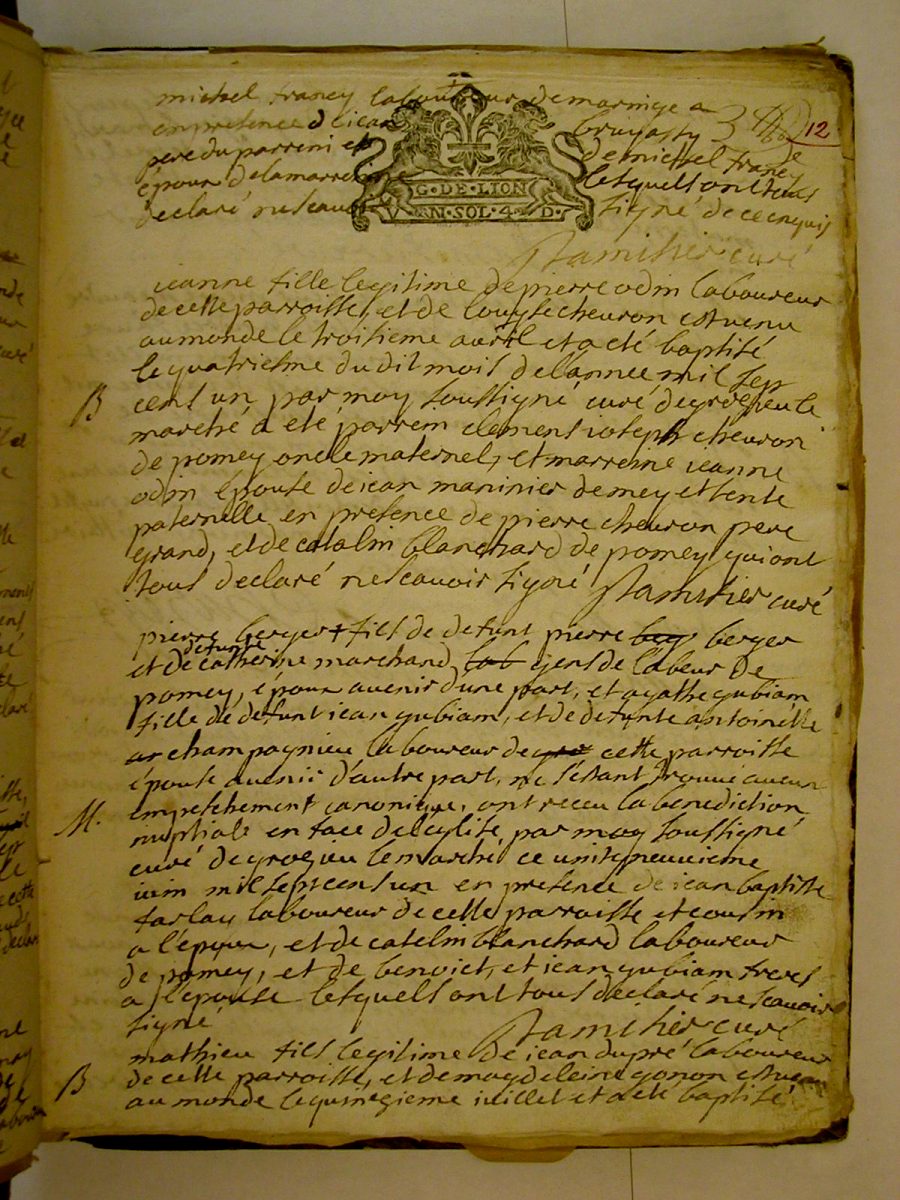 michel francy laboureur de maringe a
en presence d iean bruyassy 3 12
pere du parrein et de michel francy
époux de la marreine lesquels ont tous
declaré ne scavoir signé de ce enquis
G·DE·LION
V N·SOL·4·D·
curé
ieanne fille legitime de pierre odin laboureur
de cette parroisse, et de louyse cheuron est venu
au monde le troisieme avril et a eté baptisé
le quatriesme du dit mois de l'annee mil sept
B cens un par moy soussigné curé de
marché a eté parrein clemens ioseph cheuron
de pomey oncle maternel, et marreine ieanne
odin épouse de iean maninier de mey et tente
paternelle en presence de pierre cheuron pere
grand, et de catelin blanchard de pomey qui ont
tous declaré ne scavoir signé curé
pierre berger fils de defunt pierre berger
et de defunte catherine marchand gens de labeur de
pomey, époux avenir d'une part, et agathe gubiam
fille de defunt iean gubiam, et de defunte antoinette
champagnieu laboureur de cette parroisse
épouse avenir d'autre part, ne s'estant trouvé aucun
empeschement canonique, ont receu la benediction
M. nuptiale en face de l'eglise par moy soussigné
curé de grosieu le marché ce
iuin mil sept cens un en presence de iean baptiste
farlay laboureur de cette parroisse et cousin
a l'epoux, et de catelin blanchard laboureur
de pomey, et de benoict, et iean gubiam freres
a l'épouse lesquels ont tous declaré ne scavoir
signé curé
mathieu fils legitime de iean dupré laboureur
B de cette parroisse, et de magdeleine gonon est venu
au monde le iuillet et a eté baptisé